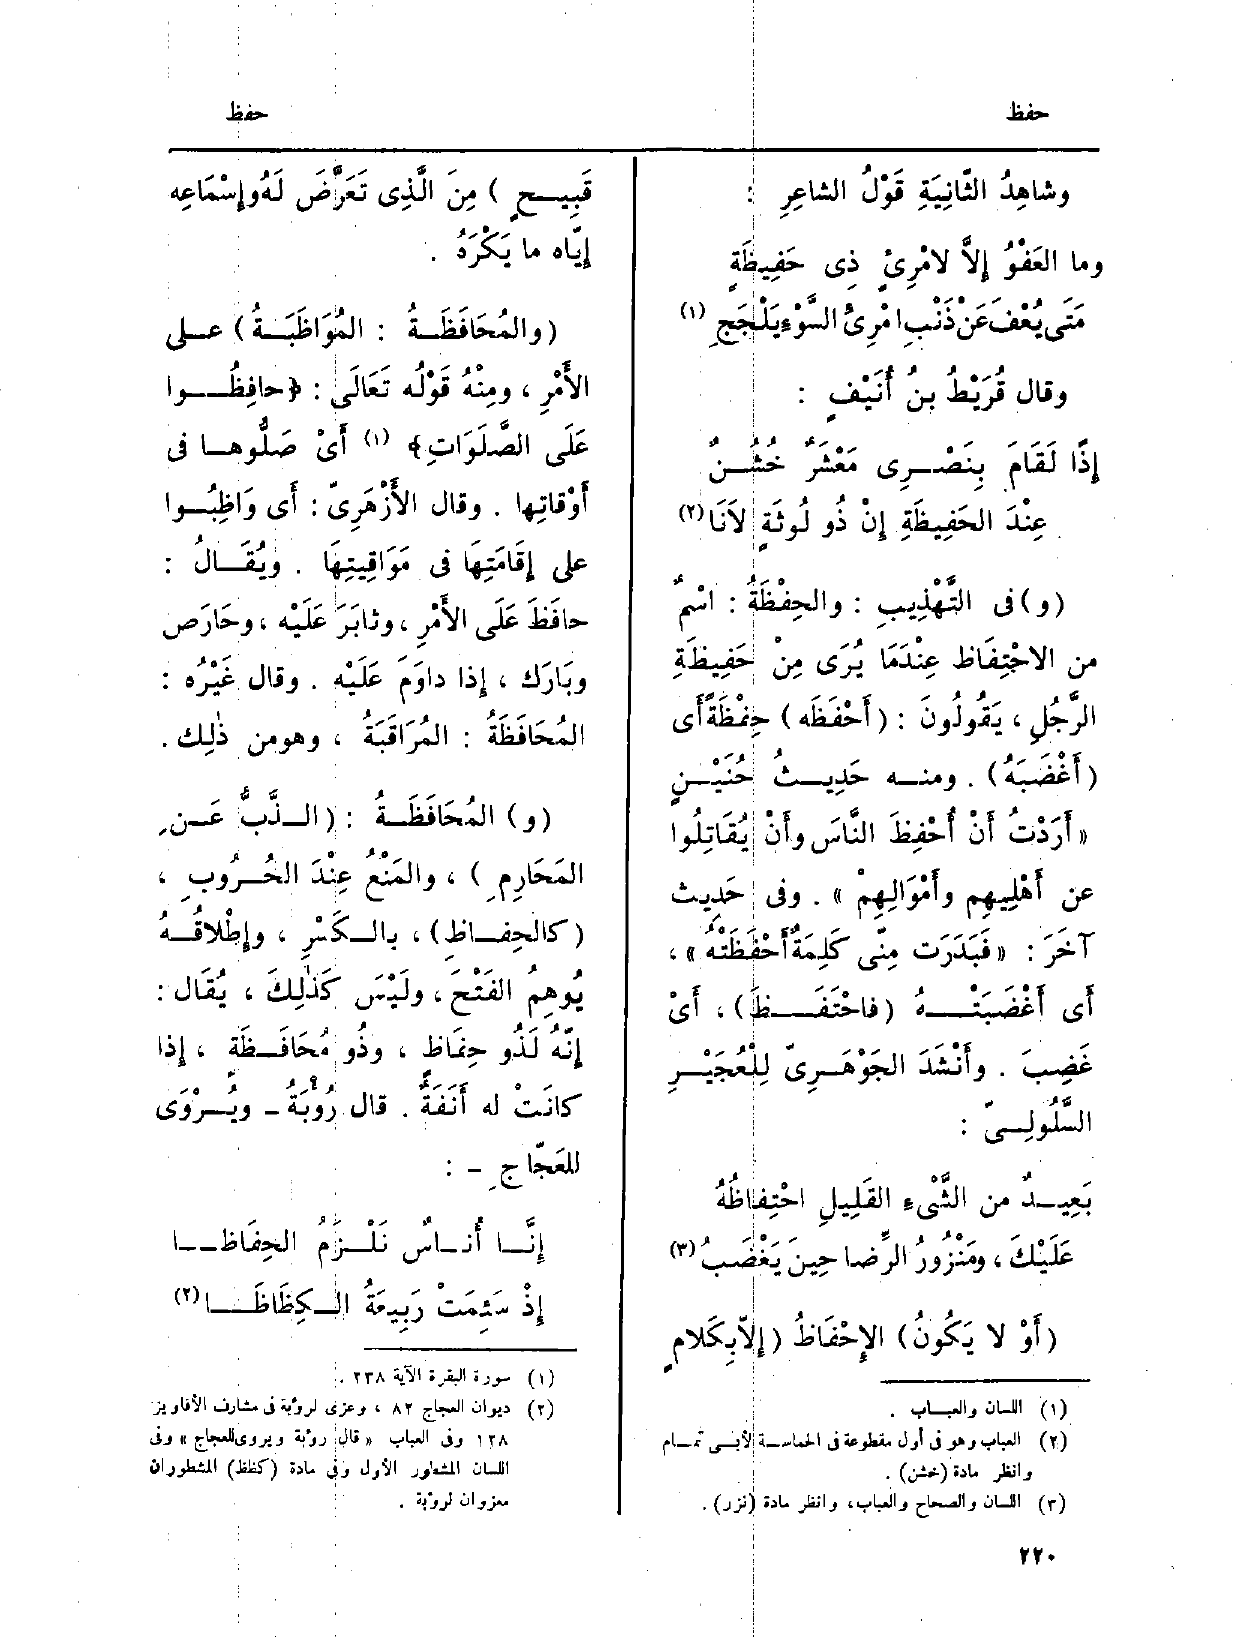 حفظ
حفظ
وشاهِدُ الثّانِيَةِ قَوْلُ الشاعِرِ :
وما العَفْوُ إِلاَّ لامْرِئٍ ذِى حَفِيظَةٍ
مَتَى يُعْفَ عَنْ ذَنْبِ امْرِئِ السَّوْءِ يَلْجَجِ (١)
وقال قُرَيْطُ بنُ أُنَيْفٍ :
إِذًا لَقَامَ بِنَصْـرِى مَعْشَرٌ خُشُـنٌ
عِنْدَ الحَفِيظَةِ إِنْ ذُو لُوثَةٍ لاَنَا (٢)
(و) فى التَّهْذِيبِ : والحِفْظَةُ : اسْمٌ
من الاحْتِفَاظ عِنْدَمَا يُرَى مِنْ حَفِيظَةِ
الرَّجُلِ ، يَقُولُونَ : (أَحْفَظَه) حِفْظَةً أَى
(أَغْضَبَهُ) . ومنـه حَدِيـثُ حُنَيْـنٍ
« أَرَدْتُ أَنْ أُحْفِظَ النَّاسَ وأَنْ يُقَاتِلُوا
عن أَهْلِيهِم وأَمْوَالِهِمْ » . وفى حَدِيث
آخَرَ : « فَبَدَرَت مِنِّى كَلِمَةٌ أَحْفَظَتْهُ » ،
أَى أَغْضَبَتْــهُ (فاحْتَفَــظَ) ، أَىْ
غَضِبَ . وأَنْشَدَ الجَوْهَـرِىّ لِلْعُجَيْـرِ
السَّلُولِـىّ :
بَعِيـدٌ من الشَّىْءِ القَلِيلِ احْتِفاظُهُ
عَلَيْكَ ، ومَنْزُورُ الرِّضا حِينَ يَغْضَبُ (٣)
(أَوْ لا يَكُونُ) الإِحْفَاظُ (إِلاّ بِكَلامٍ
(١) اللسان والعبـاب .
(٢) العباب وهو فى أول مقطوعة فى الحماسـة لأبـى تمـام
وانظر مادة (خشن) .
(٣) اللسان والصحاح والعباب، وانظر مادة (نزر) .
٢٢٠
قَبِيـحٍ ) مِنَ الَّذِى تَعَرَّضَ لَهُ وإِسْمَاعِه
إِيّاه ما يَكْرَهُ .
(والمُحَافَظَـةُ : المُوَاظَبَـةُ) علـى
الأَمْرِ ، ومِنْهُ قَوْلُه تَعَالَى : ﴿حافِظُــوا
عَلَى الصَّلَوَاتِ﴾ (١) أَىْ صَلُّوهـا فى
أَوْقاتِها . وقال الأَزْهَرِىّ : أَى وَاظِبُـوا
على إِقَامَتِهَا فى مَوَاقِيتِهَا . ويُقَـالُ :
حافَظَ عَلَى الأَمْرِ ، وثابَرَ عَلَيْه ، وحَارَصَ
وبَارَك ، إِذا داوَمَ عَلَيْه . وقال غَيْرُه :
المُحَافَظَةُ : المُرَاقَبَةُ ، وهو من ذٰلِك .
(و) المُحَافَظَـةُ : (الـذَّبُّ عَـنِ
المَحَارِمِ ) ، والمَنْعُ عِنْدَ الحُـرُوبِ ،
(كالحِفـاظِ) ، بالـكَسْرِ ، وإِطْلاقُـهُ
يُوهِمُ الفَتْحَ ، ولَيْسَ كَذٰلِكَ ، يُقَال :
إِنَّهُ لَذُو حِفَاظٍ ، وذُو مُحَافَـظَةٍ ، إِذا
كانَتْ له أَنَفَةٌ . قال رُؤْبَةُ - ويُـرْوَى
للعَجّاجِ - :
إِنَّـا أُنـاسٌ نَلْـزَمُ الحِفَاظَــا
إِذْ سَئِمَتْ رَبِيعَةُ الـكِظَاظَــا (٢)
(١) سورة البقرة الآية ٢٣٨ .
(٢) ديوان العجاج ٨٢ ، وعزى لرؤبة فى مشارف الأقاويز
١٣٨ وفى العباب « قال رؤبة ويروى للعجاج » وفى
اللسان المشطور الأول وفى مادة (كظظ) المشطوران
معزوان لرؤبة .